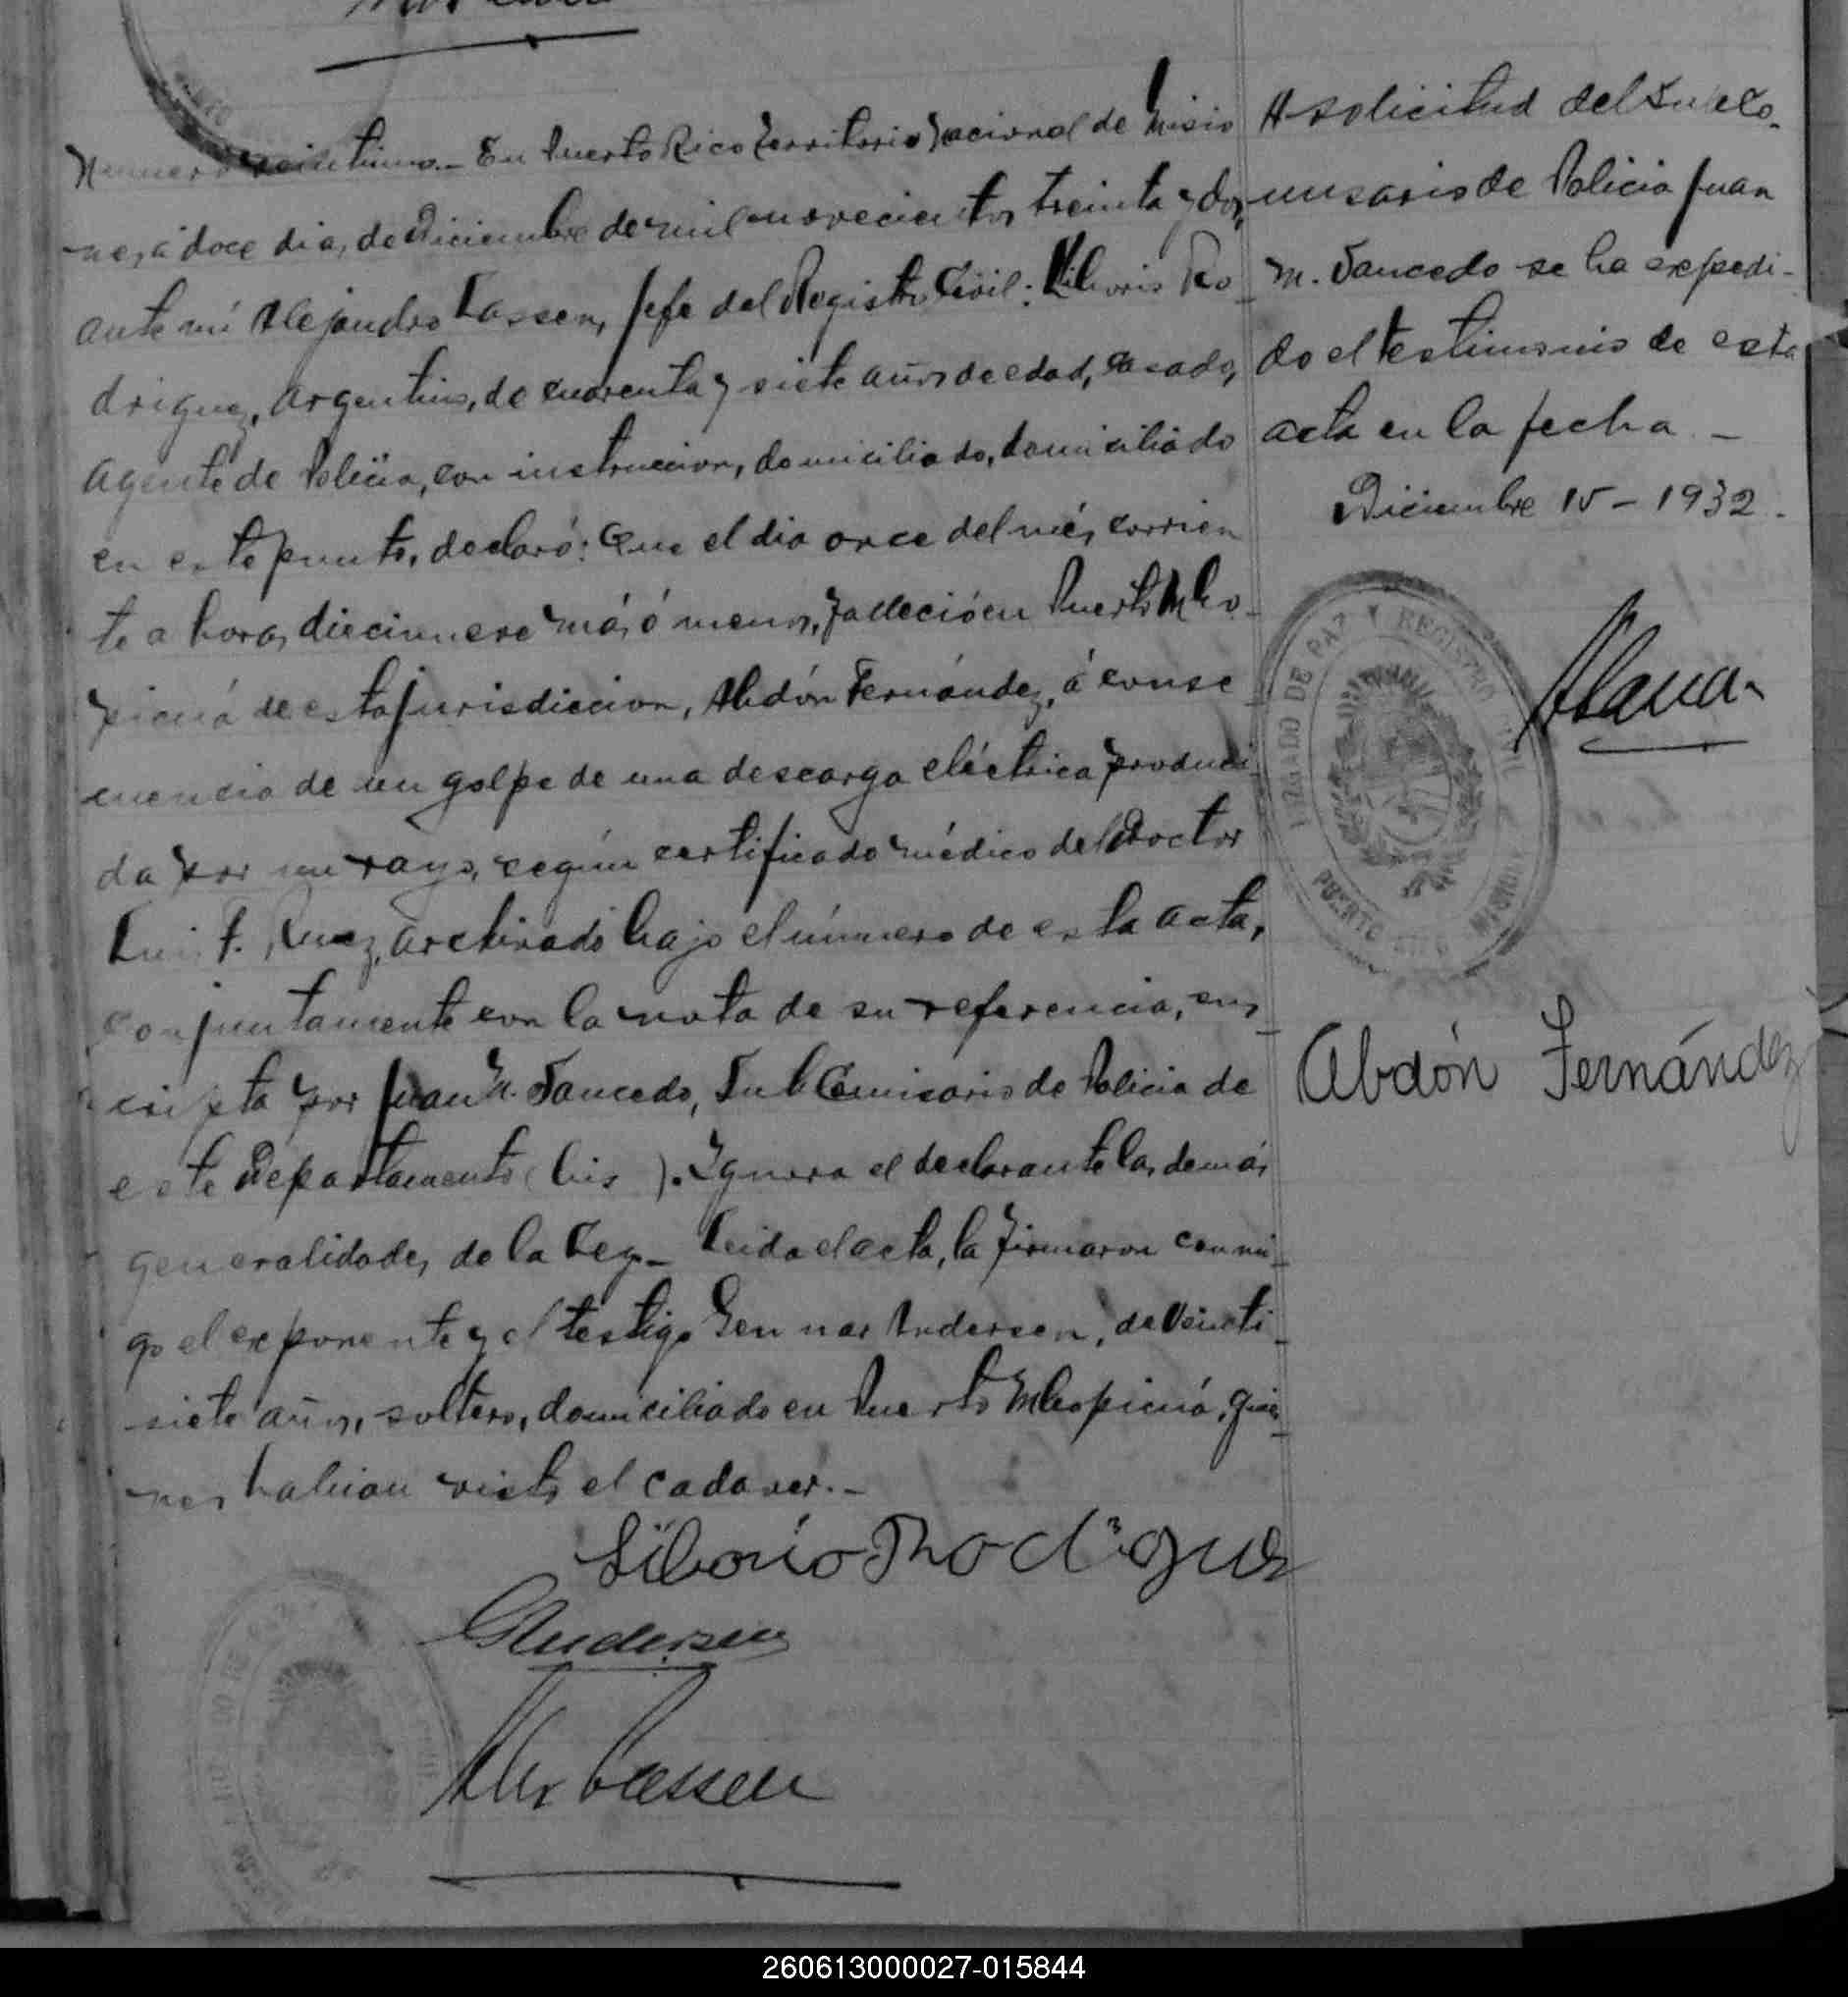 Numero veintiuno.- En Puerto Rico Territorio Nacional de Misio
nes, á doce dias de Diciembre de mil novecientos treinta y dos,
ante mi Alejandro Lassen, Jefe del Registro Civil: Liborio Ro
driguez, argentino, de cuarenta y siete años de edad, casado,
agente de Policia, con instruccion, domiciliado, domiciliado
en este punto, declaró: Que el dia once del més corrien
te a horas diecinueve más ó menos, falleció en Puerto Mbo-
picuá de esta jurisdiccion, Abdón Fernández, á conse
cuencia de un golpe de una descarga eléctrica produci
da por un rayo, según certificado médico del Doctor
Luis F. archivado bajo el número de esta acta,
conjuntamente con la nota de su referencia, sus
cripta por Juan M. Saucedo, Sub Comisario de Policia de
este Departamento (bis ). Ignora el declarante las demás
generalidades de la Ley.- Leida el acta, la firmaron conmi-
go el exponente y el testigo Gunnar Andersen, de veinti-
siete años, soltero, domiciliado en Puerto Mbopicuá, quie-
nes habian visto el cadaver.-
Liborio Rodrigues
GAndersen
Alex Lassen
A solicitud del Sub Co-
misario de Policia Juan
M. Saucedo se ha expedi-
do el testimonio de esta
acta en la fecha -
Diciembre 15 - 1932.
JUZGADO DE PAZ Y REGISTRO CIVIL
PUERTO RICO MISIONES
Abdón Fernández
260613000027-015844